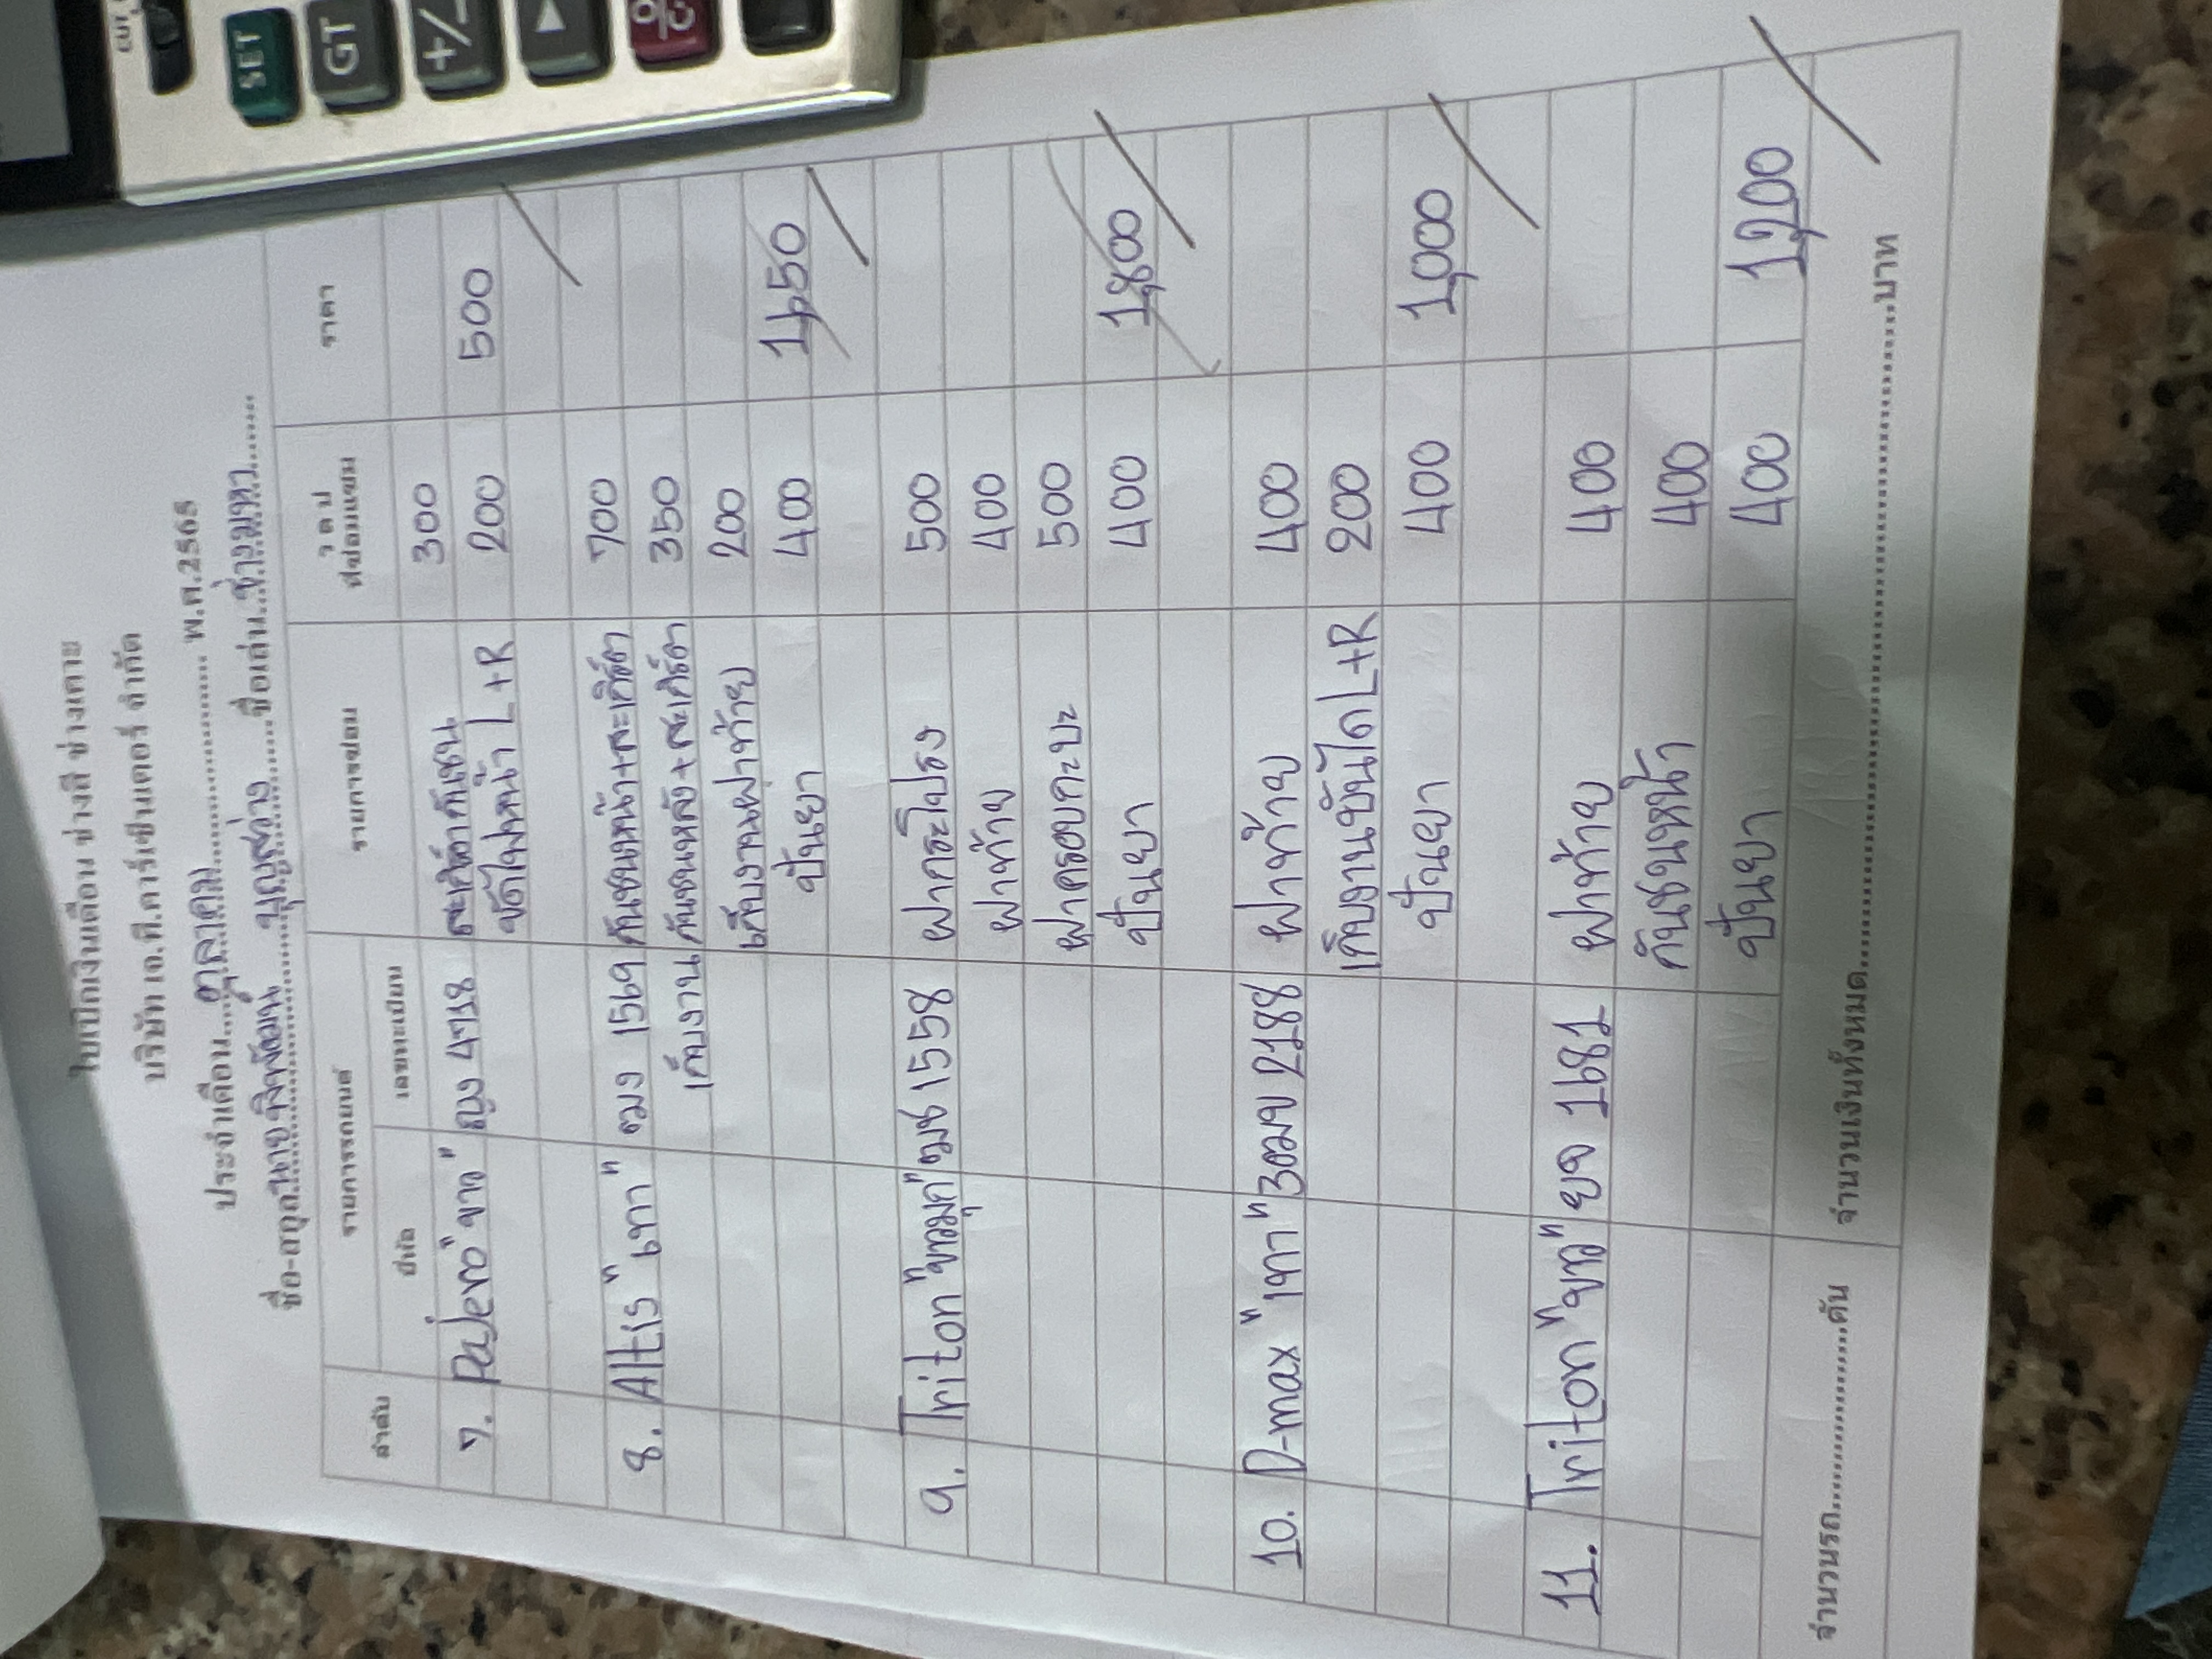 SET
GT
+/-
▶
ใบเบิกเงินเดือน ช่างสี ช่างเคาะ
บริษัท เจ.ที.คาร์เซ็นเตอร์ จำกัด
ประจำเดือน...ตุลาคม... พ.ศ.2565
ชื่อ-สกุล นาย บุญสว่าง ชื่อเล่น ช่างมหา
ลำดับ รายการรถยนต์ รายการซ่อม ว ด ป ราคา
ยี่ห้อ เลขทะเบียน ที่ซ่อมแซม
300
7. Pajero "ขาว" 4738 ขัดไฟหน้า L+R 200 500
8. Altis "เทา" ฌมง 1569 กันชนหน้า+สะเกิร์ต 700
เก็บงาน กันชนหลัง+สะเกิร์ต 350
เก็บงานฝาท้าย 200
ปั่นยา 400 1,650
9. Triton "ขาวมุก" ฒมช 1558 ฝากระโปรง 500
ฝาท้าย 400
ฝาครอบกะบะ 500
ปั่นยา 400 1,800
10. D-max "เทา" 3ฒฆ 2188 ฝาท้าย 400
เก็บงานบันได L+R 200
ปั่นยา 400 1,000
11. Triton "ขาว" ยจ 1681 ฝาท้าย 400
กันชนหน้า 400
ปั่นยา 400 1,200
จำนวนรถ....................คัน จำนวนเงินทั้งหมด....................บาท